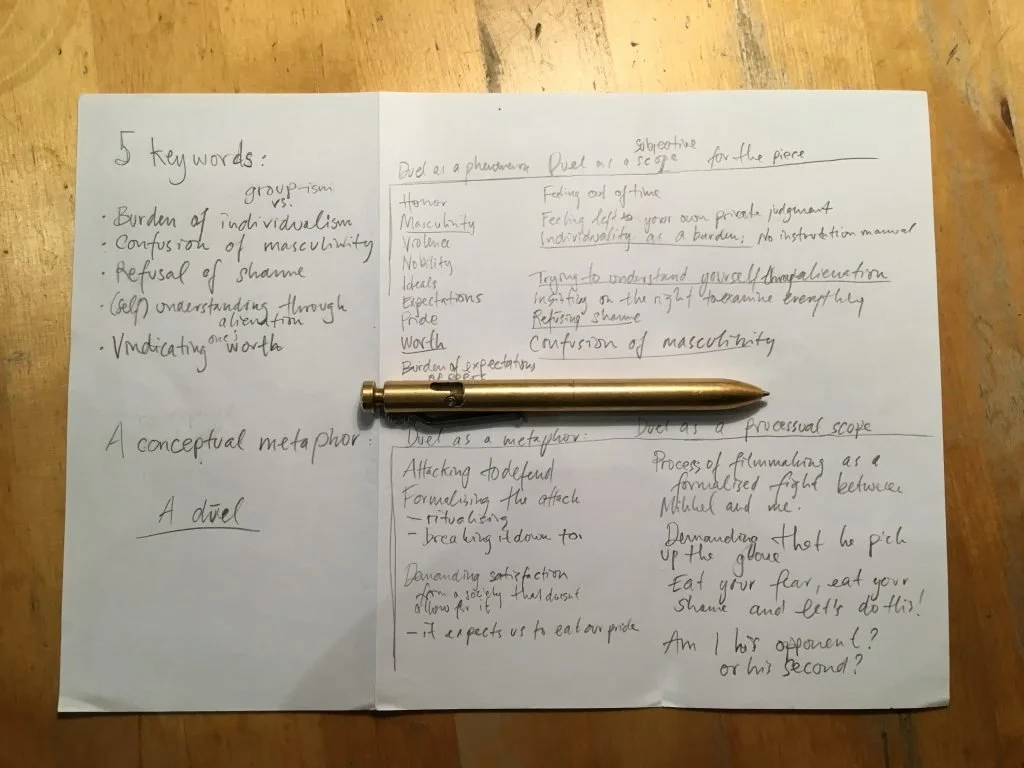 5 keywords:
group-ism
vs.
· Burden of individualism
· Confusion of masculinity
· Refusal of shame
· (self) understanding through
alienation
· Vindicating one's worth
A conceptual metaphor:
A duel
Duel as a phenomena
Honor
Masculinity
Violence
Nobility
Ideals
Expectations
Pride
Worth
Burden of expectations
subjective
Duel as a scope for the piece
Fading out of time
Feeling left to your own private judgment
Individuality as a burden; No instruction manual
Trying to understand yourself through alienation
insisting on the right to examine everything
Refusing shame
Confusion of masculinity
Duel as a metaphor:
Attacking to defend
Formalising the attack
- ritualising
- breaking it down to
Demanding satisfaction
from a society that doesn't
allow for it
- it expects us to eat our pride
Duel as a processual scope
Process of filmmaking as a
formalised fight between
Mikkel and me.
Demanding that he pick
up the glove
Eat your fear, eat your
shame and let's do this!
Am I his opponent?
or his second?